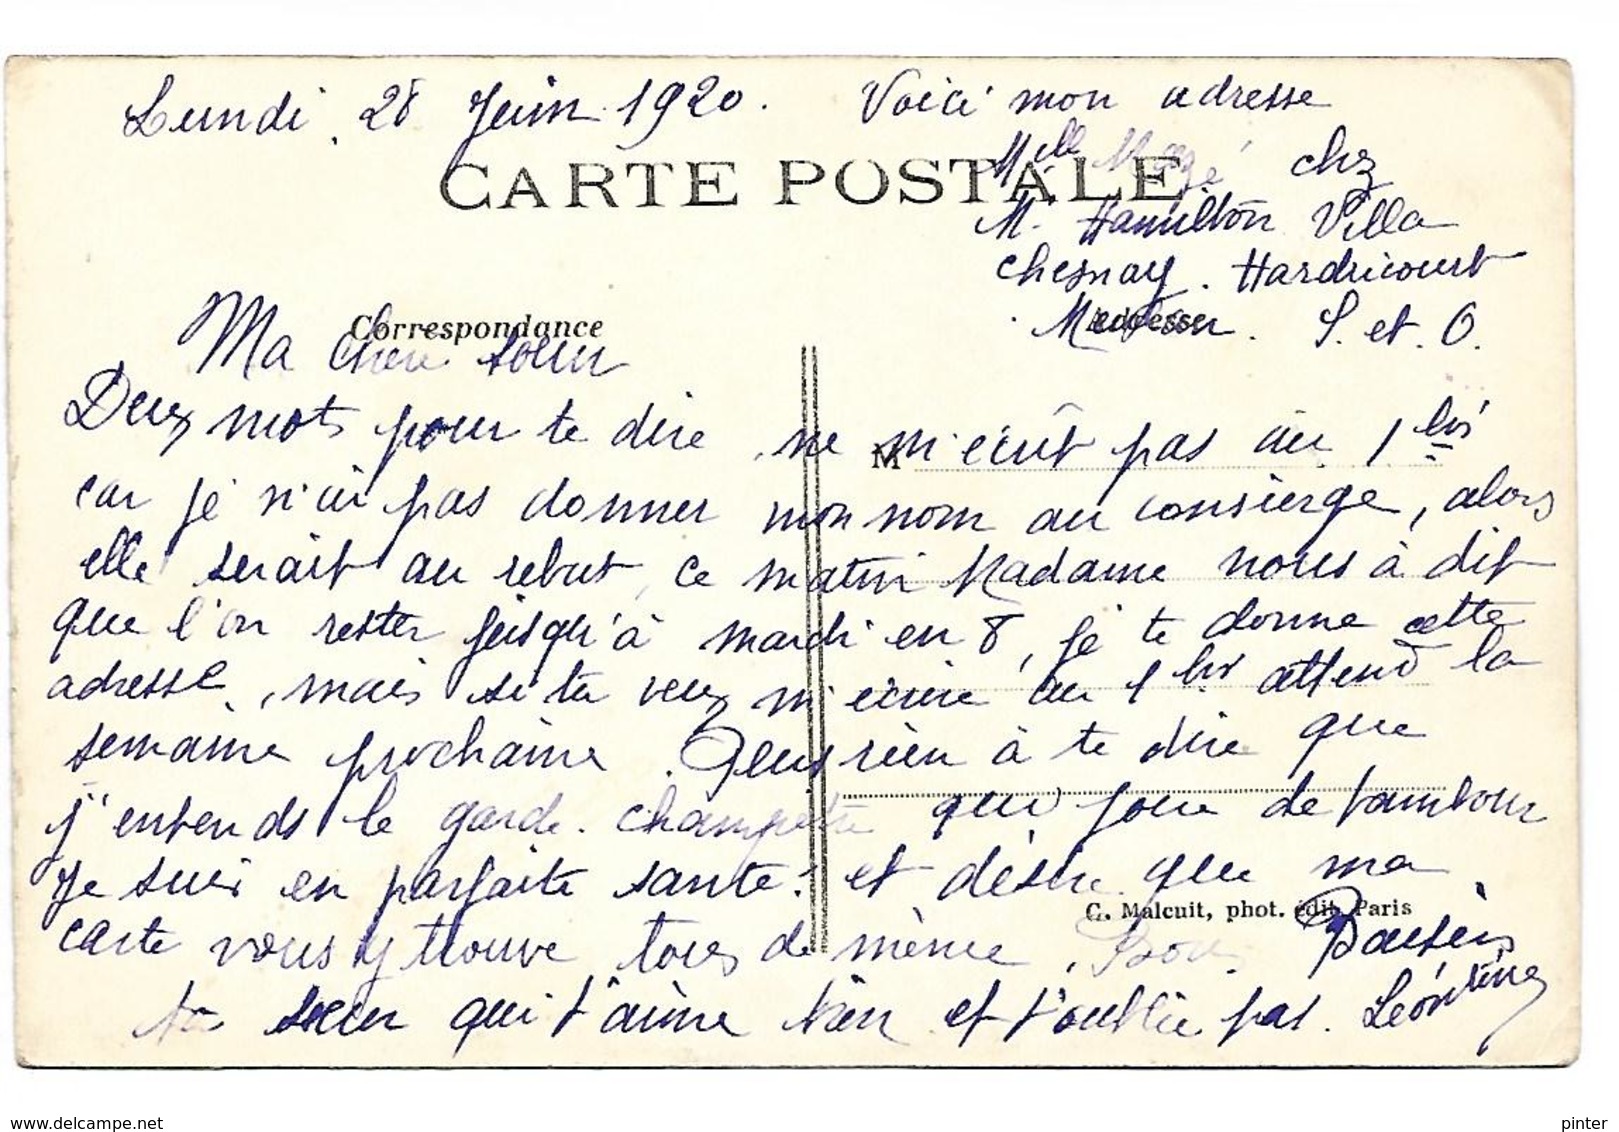 Lundi 28 Juin 1920. Voici mon adresse
CARTE POSTALE
Mlle Mazé chez
M. Hamilton Villa
Chesnay. Hardricourt
Meulan. S. et. O.
Correspondance
Adresse
Ma chere soeur
Deux mots pour te dire, ne m'écrit pas au 1 bis
M
car je n'ai pas donner mon nom au consierge, alors
elle serait au rebut, ce matin Madame nous à dit
que l'on rester jusqu'à mardi en 8, je te donne cette
adresse, mais si tu veux m'écrire au 1 bis attend la
semaine prochaine. Plus rien à te dire que
j'entends le garde. champêtre qui joue de tambour
Je suis en parfaite santé. et désire que ma
C. Malcuit, phot. édit. Paris
carte vous y trouve tous de même. Bons Baisers
ta soeur qui t'aime bien et t'oublie pas. Léontine
www.delcampe.net
pinter